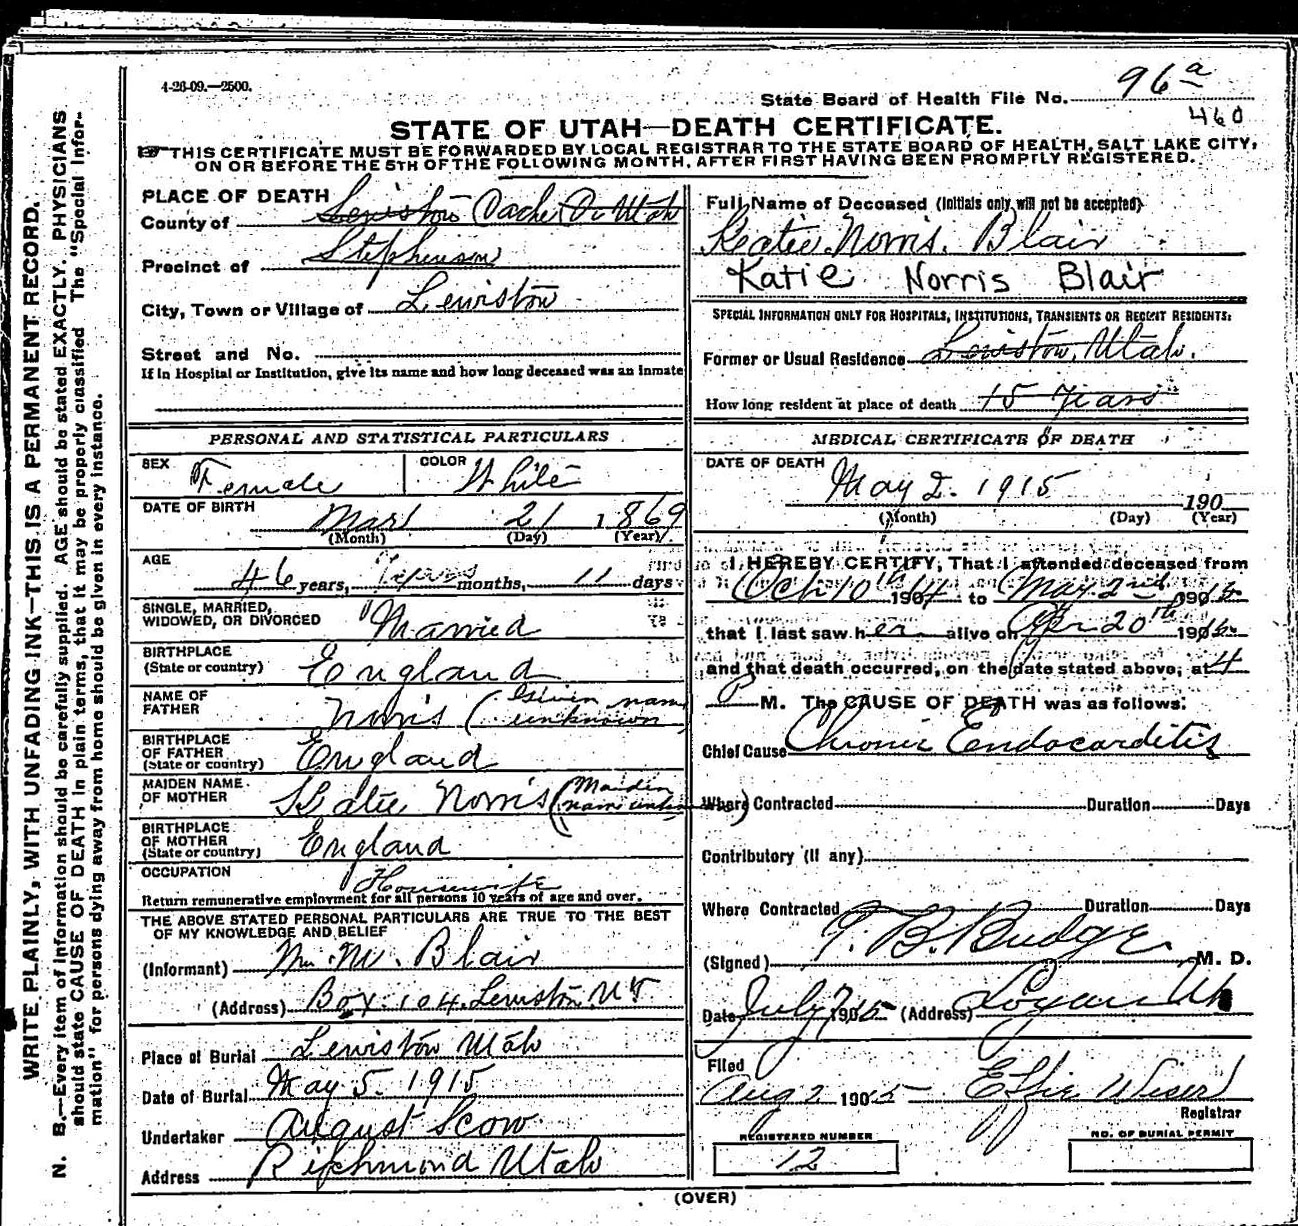 4-26-09.—2500.
State Board of Health File No. 96a
460
STATE OF UTAH—DEATH CERTIFICATE.
THIS CERTIFICATE MUST BE FORWARDED BY LOCAL REGISTRAR TO THE STATE BOARD OF HEALTH, SALT LAKE CITY,
ON OR BEFORE THE 5TH OF THE FOLLOWING MONTH, AFTER FIRST HAVING BEEN PROMPTLY REGISTERED.
WRITE PLAINLY, WITH UNFADING INK—THIS IS A PERMANENT RECORD.
N. B.—Every item of information should be carefully supplied. AGE should be stated EXACTLY. PHYSICIANS
should state CAUSE OF DEATH in plain terms, that it may be properly classified The "Special Infor-
mation" for persons dying away from home should be given in every instance.
PLACE OF DEATH
County of Lewiston Cache Co Utah
Precinct of Stephenson
City, Town or Village of Lewiston
Street and No.
If in Hospital or Institution, give its name and how long deceased was an inmate
PERSONAL AND STATISTICAL PARTICULARS
SEX Female COLOR White
DATE OF BIRTH Mar 21 1869
(Month) (Day) (Year)
AGE 46 years, months, 11 days
SINGLE, MARRIED,
WIDOWED, OR DIVORCED Married
BIRTHPLACE
(State or country) England
NAME OF
FATHER Norris (Given name
unknown
BIRTHPLACE
OF FATHER
(State or country) England
MAIDEN NAME
OF MOTHER Katie Norris (Maiden
name unkn)
BIRTHPLACE
OF MOTHER
(State or country) England
OCCUPATION Housewife
Return remunerative employment for all persons 10 years of age and over.
THE ABOVE STATED PERSONAL PARTICULARS ARE TRUE TO THE BEST
OF MY KNOWLEDGE AND BELIEF
(Informant) M. Blair
(Address) Box 104 Lewiston UT
Place of Burial Lewiston Utah
Date of Burial May 5. 1915
Undertaker August Scow
Address Richmond Utah
Full Name of Deceased (Initials only will not be accepted)
Katie Norris. Blair
Katie Norris Blair
SPECIAL INFORMATION ONLY FOR HOSPITALS, INSTITUTIONS, TRANSIENTS OR RECEIT RESIDENTS:
Former or Usual Residence Lewiston, Utah.
How long resident at place of death 15 Years
MEDICAL CERTIFICATE OF DEATH
DATE OF DEATH May 2. 1915 190
(Month) (Day) (Year)
I HEREBY CERTIFY, That I attended deceased from
Oct 10th 1904 to May 2nd 1905
that I last saw her alive on Apr 20th 1905
and that death occurred, on the date stated above, at 4
P M. The CAUSE OF DEATH was as follows:
Chief Cause Chronic Endocarditis
Where Contracted Duration Days
Contributory (If any)
Where Contracted Duration Days
(Signed) T. B. Budge M. D.
Date July 7 1905 (Address) Logan Ut
Filed
Aug 2 1905 Effie Wiser
Registrar
REGISTERED NUMBER
12
NO. OF BURIAL PERMIT
(OVER)